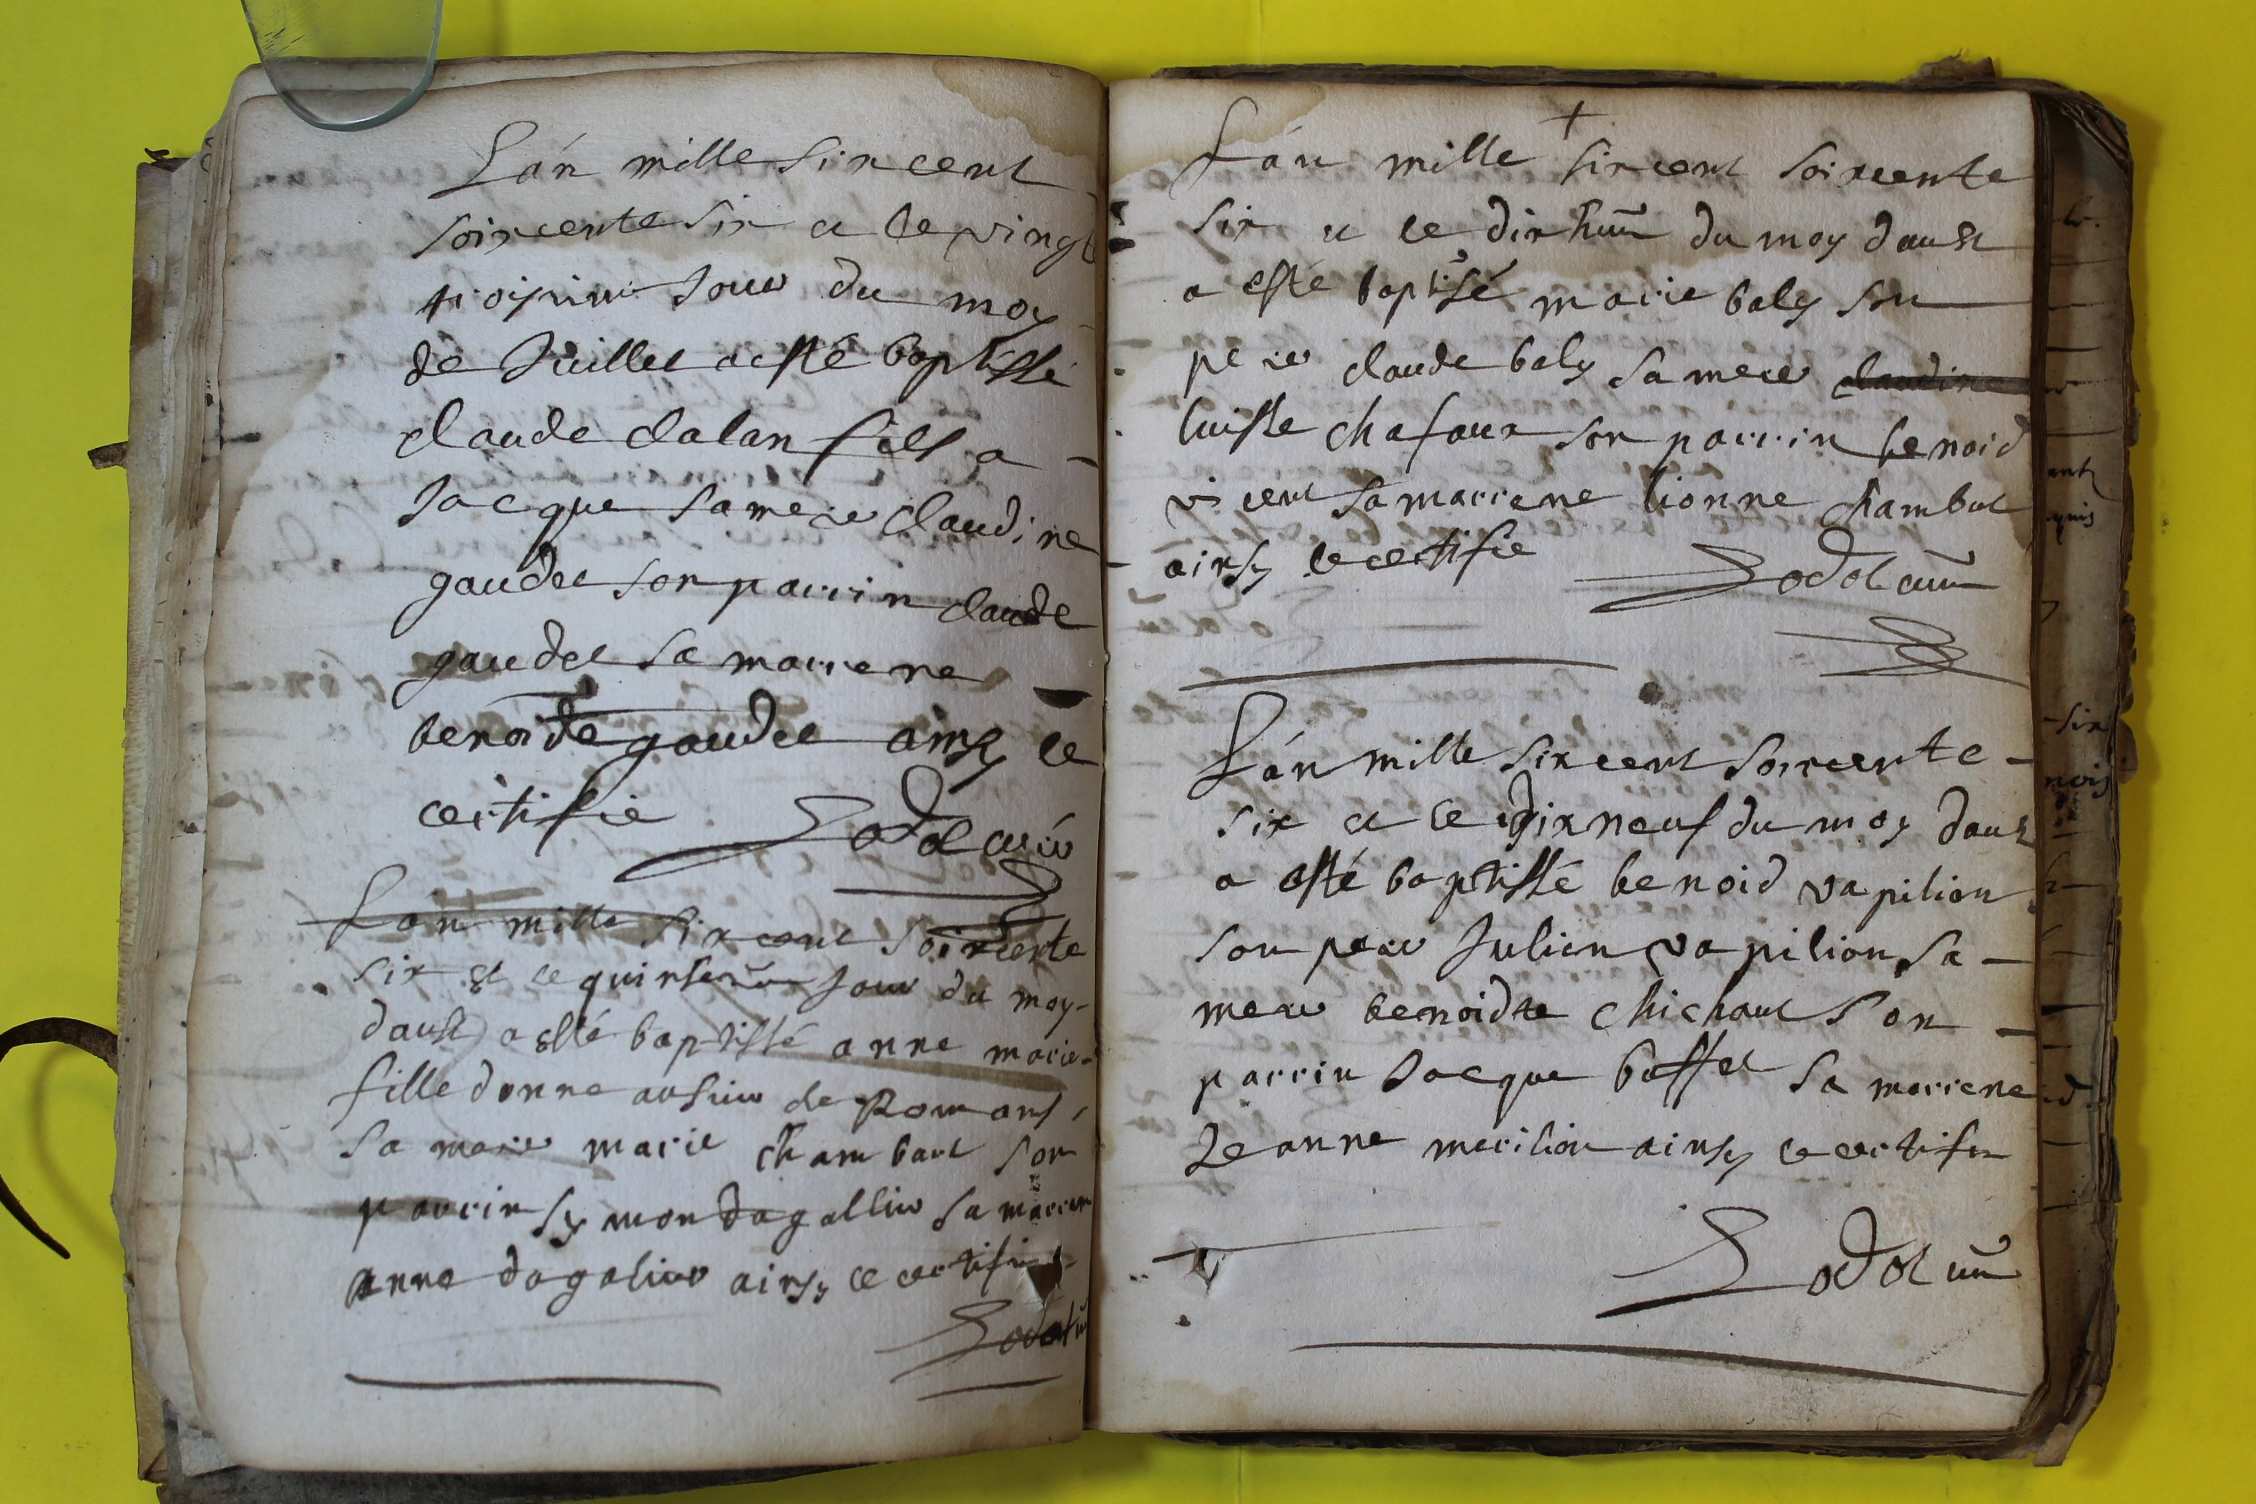 L'an mille sixcent
soixcente six et le vingt
troisiem Jour du moy
de Juillet a esté baptissé
claude clalan fils a
Jacque sa mere claudine
gaudet son parrin claude
gaudet sa marrene
benoite gaudet ainsy le
certifie Dodat curé
L'an mille sixcent soixcente
six et le quinseiem Jour du moy
daust a esté baptissé anne marie
fille donne ausiur de Romans
sa mere marie chambaut son
parrin symon dagallier sa marren
anne dagalier ainsy le certifie
Dodat
+
L'an mille sixcent soixcente
six et le dix huit du moy daust
a esté baptisé marie baly son
pere claude baly sa mere claudine
luisse chafaux son parrin benoid
vicent sa marrene lionne chambut
ainsy le certifie Dodat cure
L'an mille sixcent soixcente
six et le dixneuf du moy daust
a esté baptissé benoid vapilion
son pere Julien vapilion sa
mere benoidte chichaut son
parrin Jacque buffet sa marrene
Jeanne marilion ainsy le certifie
Dodat cure